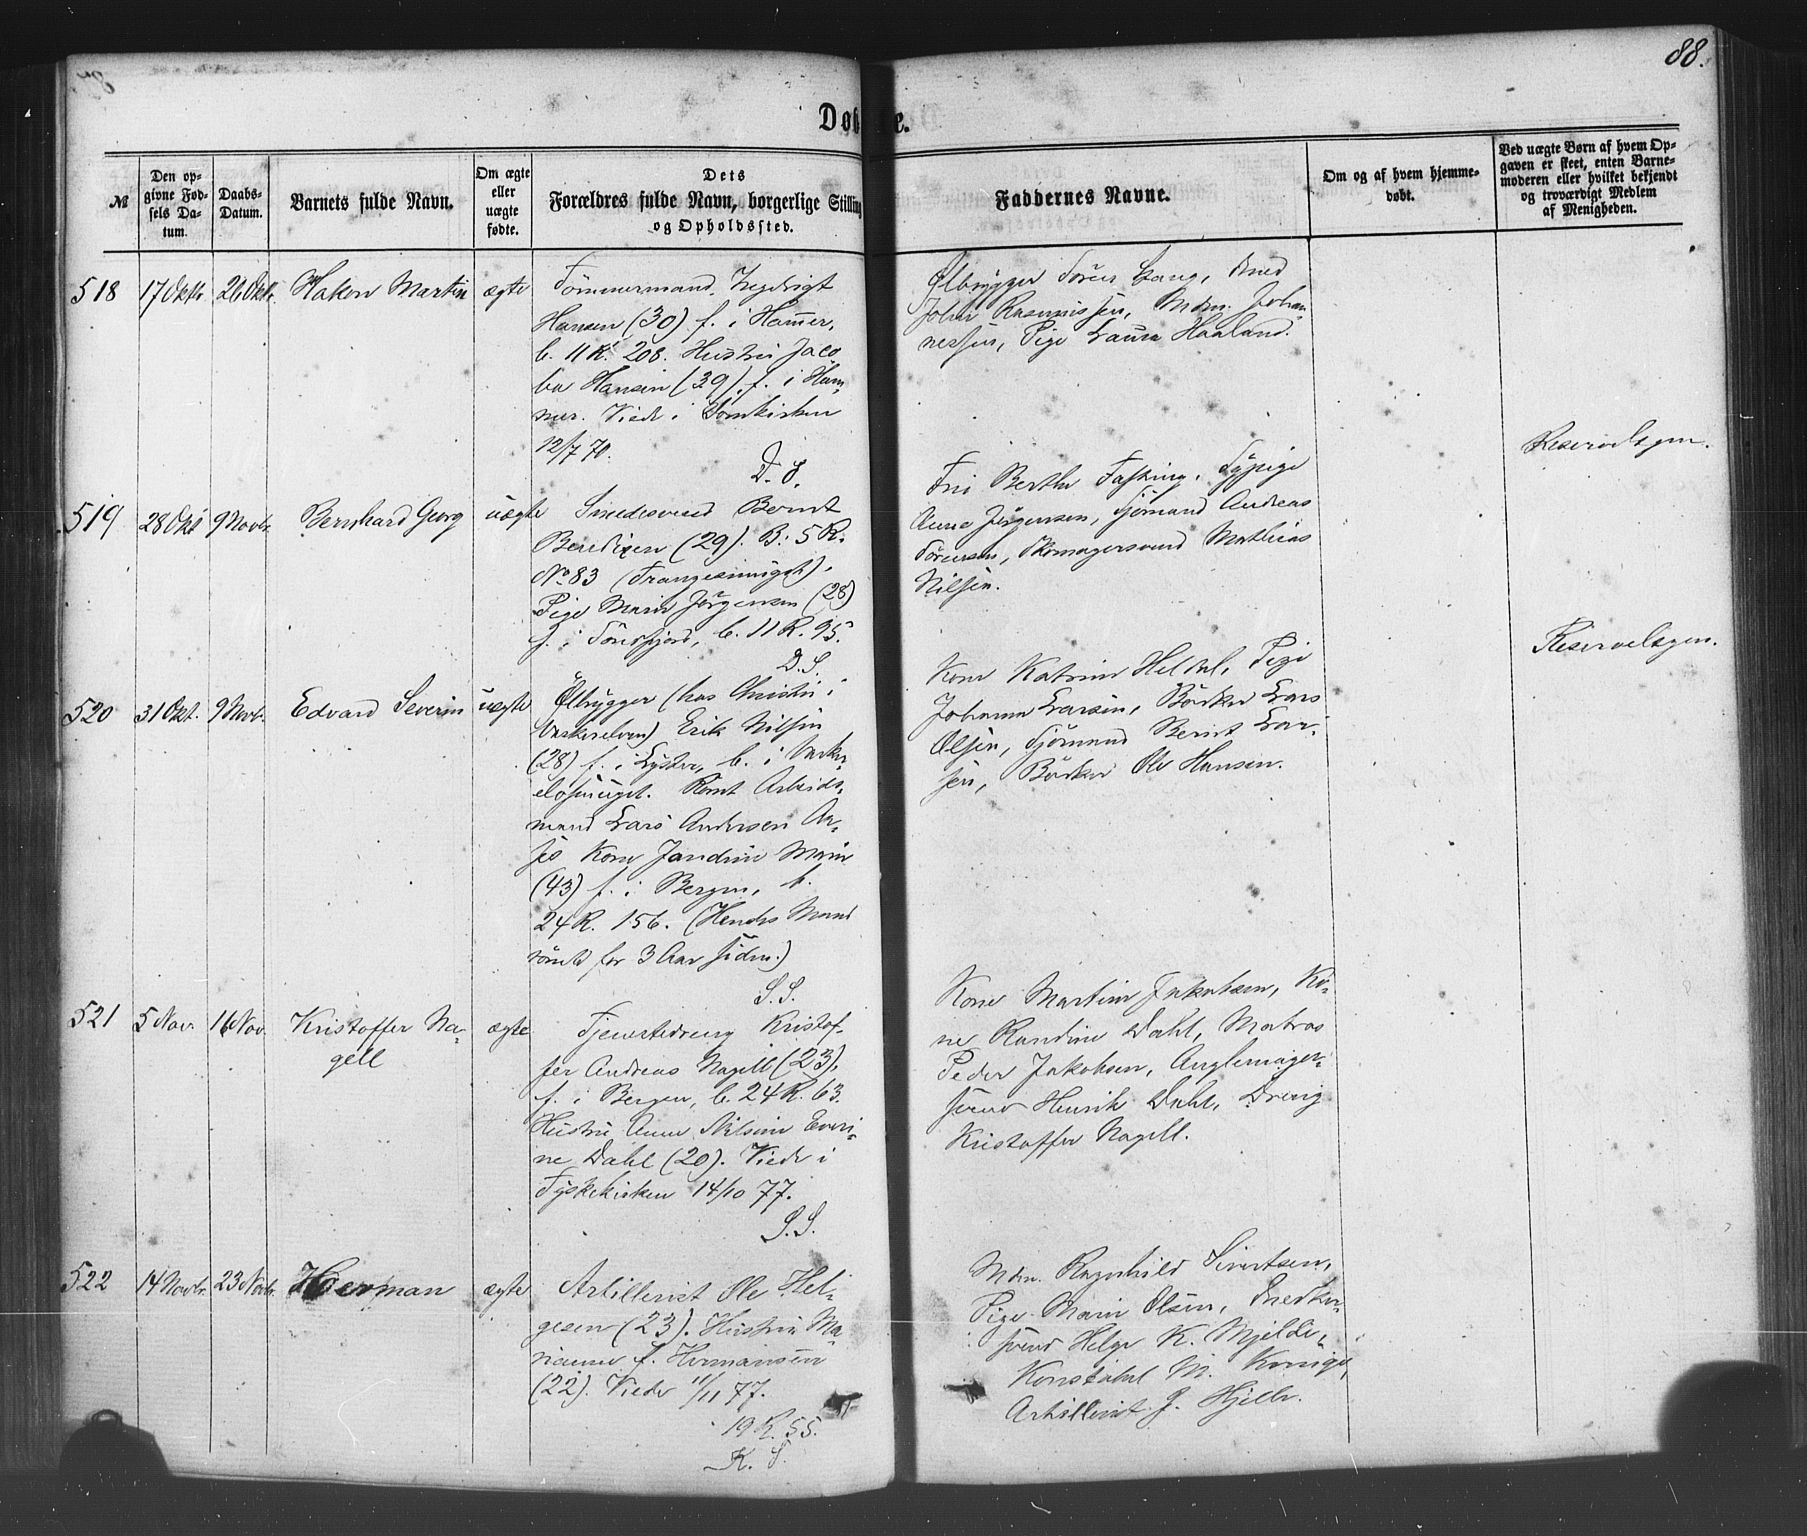 88.
Døbte.
№
Den op-
givne Fød-
sels Da-
tum.
Daabs-
Datum.
Barnets fulde Navn.
Om ægte
eller
uægte
fødte.
Dets
Forældres fulde Navn, borgerlige Stilling
og Opholdssted.
Faddernes Navne.
Om og af hvem hjemme-
døbt.
Ved uægte Børn af hvem Op-
gaven er skeet, enten Barne-
moderen eller hvilket bekjendt
og troværdigt Medlem
af Menigheden.
518
17 Oktr.
26 Oktr.
Hakon Martin
ægte
Tømmermand Ingebrigt
Hansen (30) f. i Hammer,
b. 11 R. 208. Hustru Jaco-
ba Hansen (39), f. i Ham-
mer. Viede i Domkirken
12/7 70.
D. S.
Ølbrygger Sören Lang, Sned
Johan Rasmussen, Mdm. Johan-
nessen, Pige Laura Haaland.
519
28 Okt
9 Novbr.
Bernhard Georg
uægte
Smedesvend Bernt
Bendixen (29). B: 5 R.
No 83 (Trangesmuget).
Pige Marie Jørgensen (28)
f. i Söndfjord, b. 11 R. 95.
D. S.
Frü Berthe Fasting, Sypige
Anne Jørgensen, Sjömand Andreas
Sörensen, Skomagersvend Mathias
Nilsen.
Reservelsgen.
520
31 Okt.
9 Novb.
Edvard Severin
uægte
Ølbrygger (hos Christie i
Vaskerelven) Erik Nilsen
(28) f. i Lyster, b. i Vasker-
elvsmuget. Römt Arbeids-
mand Lars Andersen
Kone Jandine Marie
(43) f. i Bergen, b.
24 R. 156. (Hendes Mand
römte for 3 Aar siden.)
S. S.
Kone Katrine Heldal, Pige
Johanna Larsen, Bödker Lars
Olsen, Sjömand Bernt Lar-
sen, Bödker Ole Hansen.
Reservelsgen.
521
5 Nov.
16 Nov.
Kristoffer Na-
gell
ægte
Tjenestedreng Kristof-
fer Andreas Nagell (23),
f. i Bergen, b. 24 R. 63.
Hustru Anne Nilsine Everi-
ne Dahl (20). Viede i
Tyskekirken 14/10 77.
S. S.
Kone Martine Jakobsen, Ko-
ne Randine Dahl, Matros
Peder Jakobsen, Anglemager-
svend Henrik Dahl, Dreng
Kristoffer Nagell.
522
14 Novbr.
23 Novbr.
Herman
ægte
Artillerist Ole Hel-
gesen (23). Hustru Ma-
rianne f. Hermansen
(22). Viede 11/11 77.
19 R. 55.
K. S.
Mdm. Ragnhild Sivertsen,
Pige Marie Olsen, Snedker-
svend Helge K. Mjelde,
Konstabel M.
Artillerist J. Hjelle.